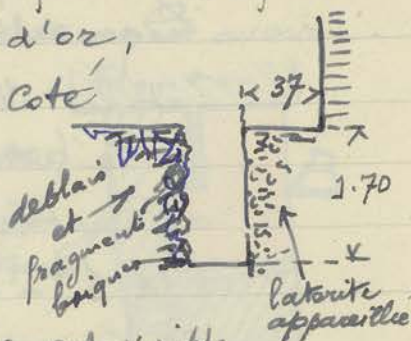 d'or,
Coté
37
1.70
deblais
et
fragments
briques
laterite
appareillée